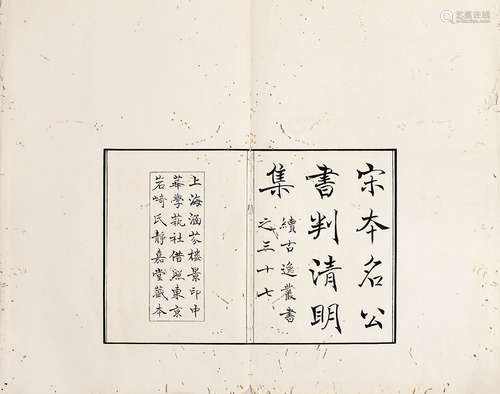 宋本名公
書判清明
集
續古逸叢書
之三十七
上海涵芬樓景印中
華學藝社借照東京
岩崎氏靜嘉堂藏本